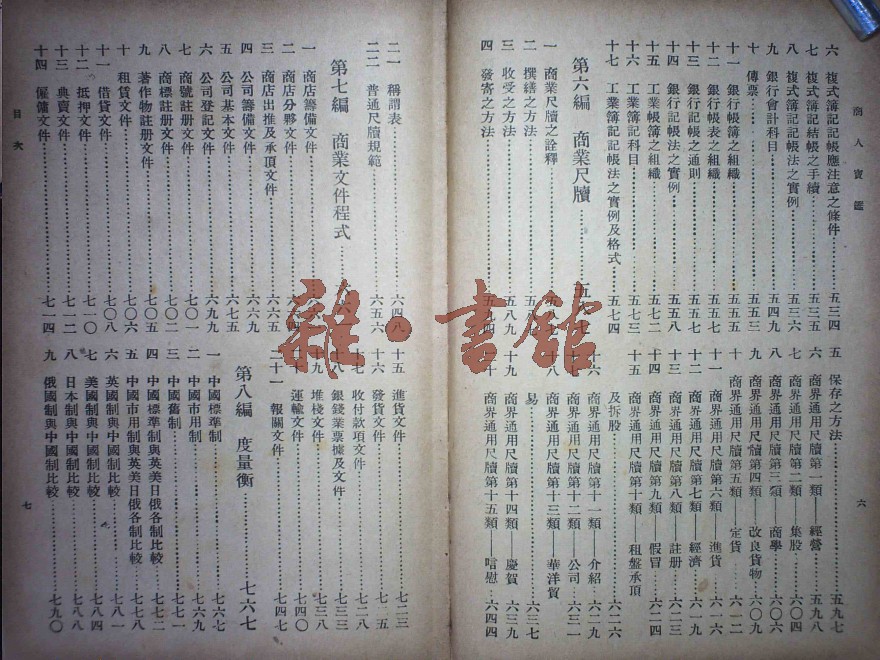 商人寶鑑
六 複式簿記記帳應注意之條件 五三四
七 複式簿記結帳之手續 五三五
八 複式簿記記帳法之實例 五三六
九 銀行會計科目 五四九
十 傳票 五五三
十一 銀行帳簿之組織 五五五
十二 銀行帳表之組織 五五七
十三 銀行記帳之通則 五五八
十四 銀行記帳法之實例 五五八
十五 工業帳簿之組織 五七二
十六 工業簿記科目 五七三
十七 工業簿記記帳法之實例及格式 五七四
第六編 商業尺牘
一 商業尺牘之詮釋
二 撰繕之方法
三 收受之方法 五八九
四 發寄之方法 五九四
五 保存之方法 五九七
六 商界通用尺牘第一類——經營 五九八
七 商界通用尺牘第二類——集股 六〇四
八 商界通用尺牘第三類——商學 六〇六
九 商界通用尺牘第四類——改良貨物 六〇九
十 商界通用尺牘第五類——定貨 六一二
十一 商界通用尺牘第六類——進貨 六一六
十二 商界通用尺牘第七類——經濟 六一九
十三 商界通用尺牘第八類——註册 六二三
十四 商界通用尺牘第九類——假冒 六二四
十五 商界通用尺牘第十類——租盤承頂
及拆股 六二六
十六 商界通用尺牘第十一類——介紹 六二九
商界通用尺牘第十二類——公司 六三一
十八 商界通用尺牘第十三類——華洋貿
易 六三七
十九 商界通用尺牘第十四類——慶賀 六三九
二十 商界通用尺牘第十五類——唁慰 六四四
六
二一 稱謂表 六四八
二二 普通尺牘規範 六五六
第七編 商業文件程式
一 商店籌備文件
二 商店分夥文件
三 商店出推及承頂文件 六六五
四 公司籌備文件 六六九
五 公司基本文件 六七五
六 公司登記文件 六九九
七 商號註册文件 七〇一
八 商標註册文件 七〇二
九 著作物註册文件 七〇五
十 租賃文件 七〇六
十一 借貸文件 七〇八
十二 抵押文件 七一〇
十三 典賣文件 七一二
十四 僱傭文件 七一四
十五 進貨文件 七二三
十六 發貨文件 七二五
十七 收付款項文件 七二八
十八 銀錢業票據及文件 七三三
十九 堆棧文件 七三八
二十 運輸文件 七四〇
二十一 報關文件 七四七
第八編 度量衡 七六七
一 中國標準制 七六七
二 中國市用制 七六九
三 中國舊制 七七一
四 中國標準制與英美日俄各制比較 七七二
五 中國市用制與英美日俄各制比較
六 英國制與中國制比較 七八一
七 美國制與中國制比較
八 日本制與中國制比較 七八八
九 俄國制與中國制比較 七九〇
目次
七
雜·書館